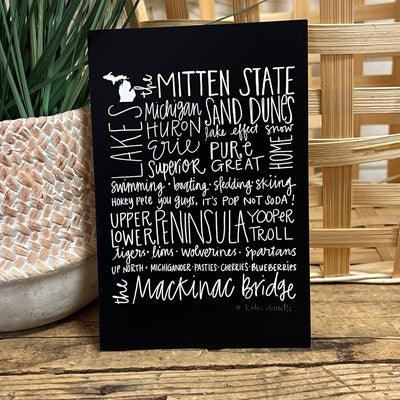 the MITTEN STATE
LAKES
Michigan
HURON
Erie
Superior
SAND DUNES
lake effect snow
PURE
GREAT
HOME
swimming · boating · sledding skiing
HOKEY PETE YOU GUYS, IT'S POP NOT SODA!
UPPER
LOWER
PENINSULA
YOOPER
TROLL
tigers · lions · wolverines · spartans
UP NORTH · MICHIGANDER · PASTIES · CHERRIES · BLUEBERRIES
the Mackinac Bridge